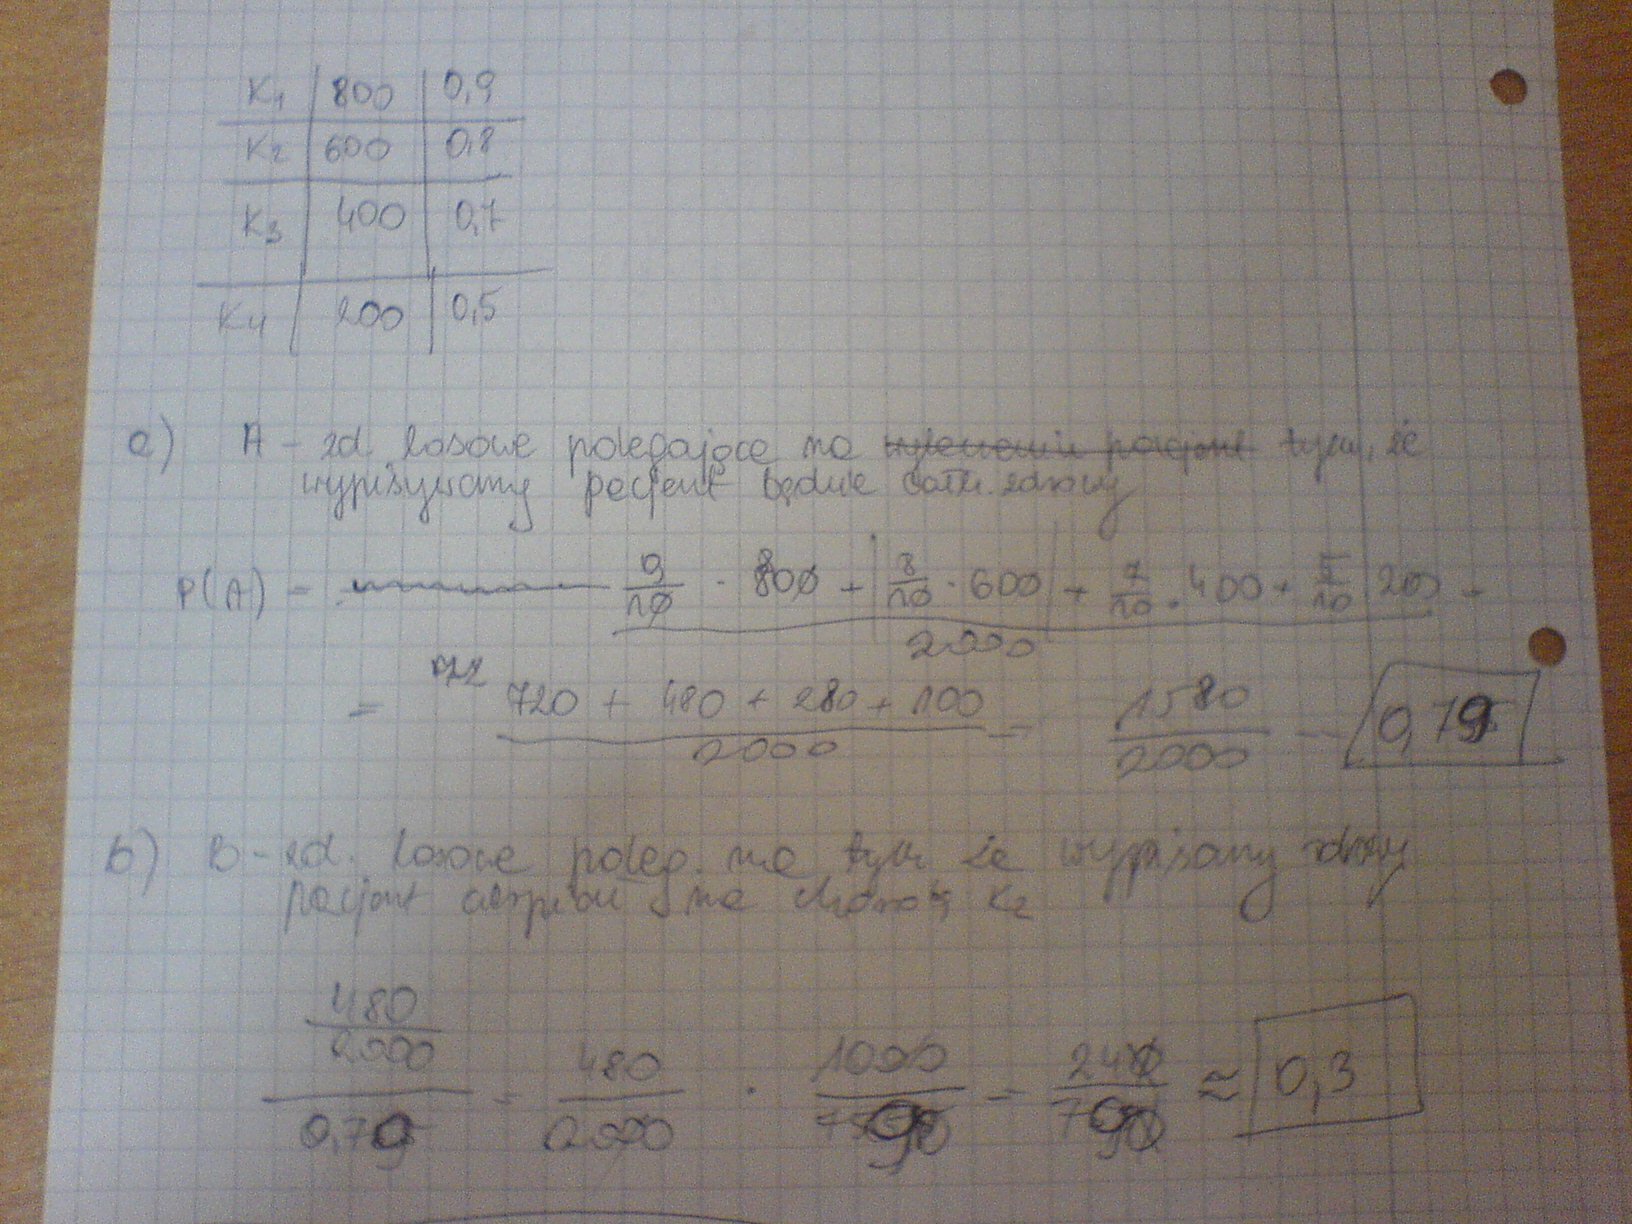 K1 | 800 | 0,9
K2 | 600 | 0,8
K3 | 400 | 0,7
K4 | 200 | 0,5
a) A - zd. losowe polegające na tym, że
wypisywany pacjent będzie całk. zdrowy
P(A) = 9/10 · 800 + 8/10 · 600 + 7/10 · 400 + 5/10 200 =
2000
= 720 + 480 + 280 + 100 = 1580 = 0,79
2000 2000
b) B - zd. losowe poleg. na tym że wypisany zdrowy
pacjent cierpiał na chorobę K2
480
2000 = 480 · 1000 = 240 ≈ 0,3
0,79 2000 790